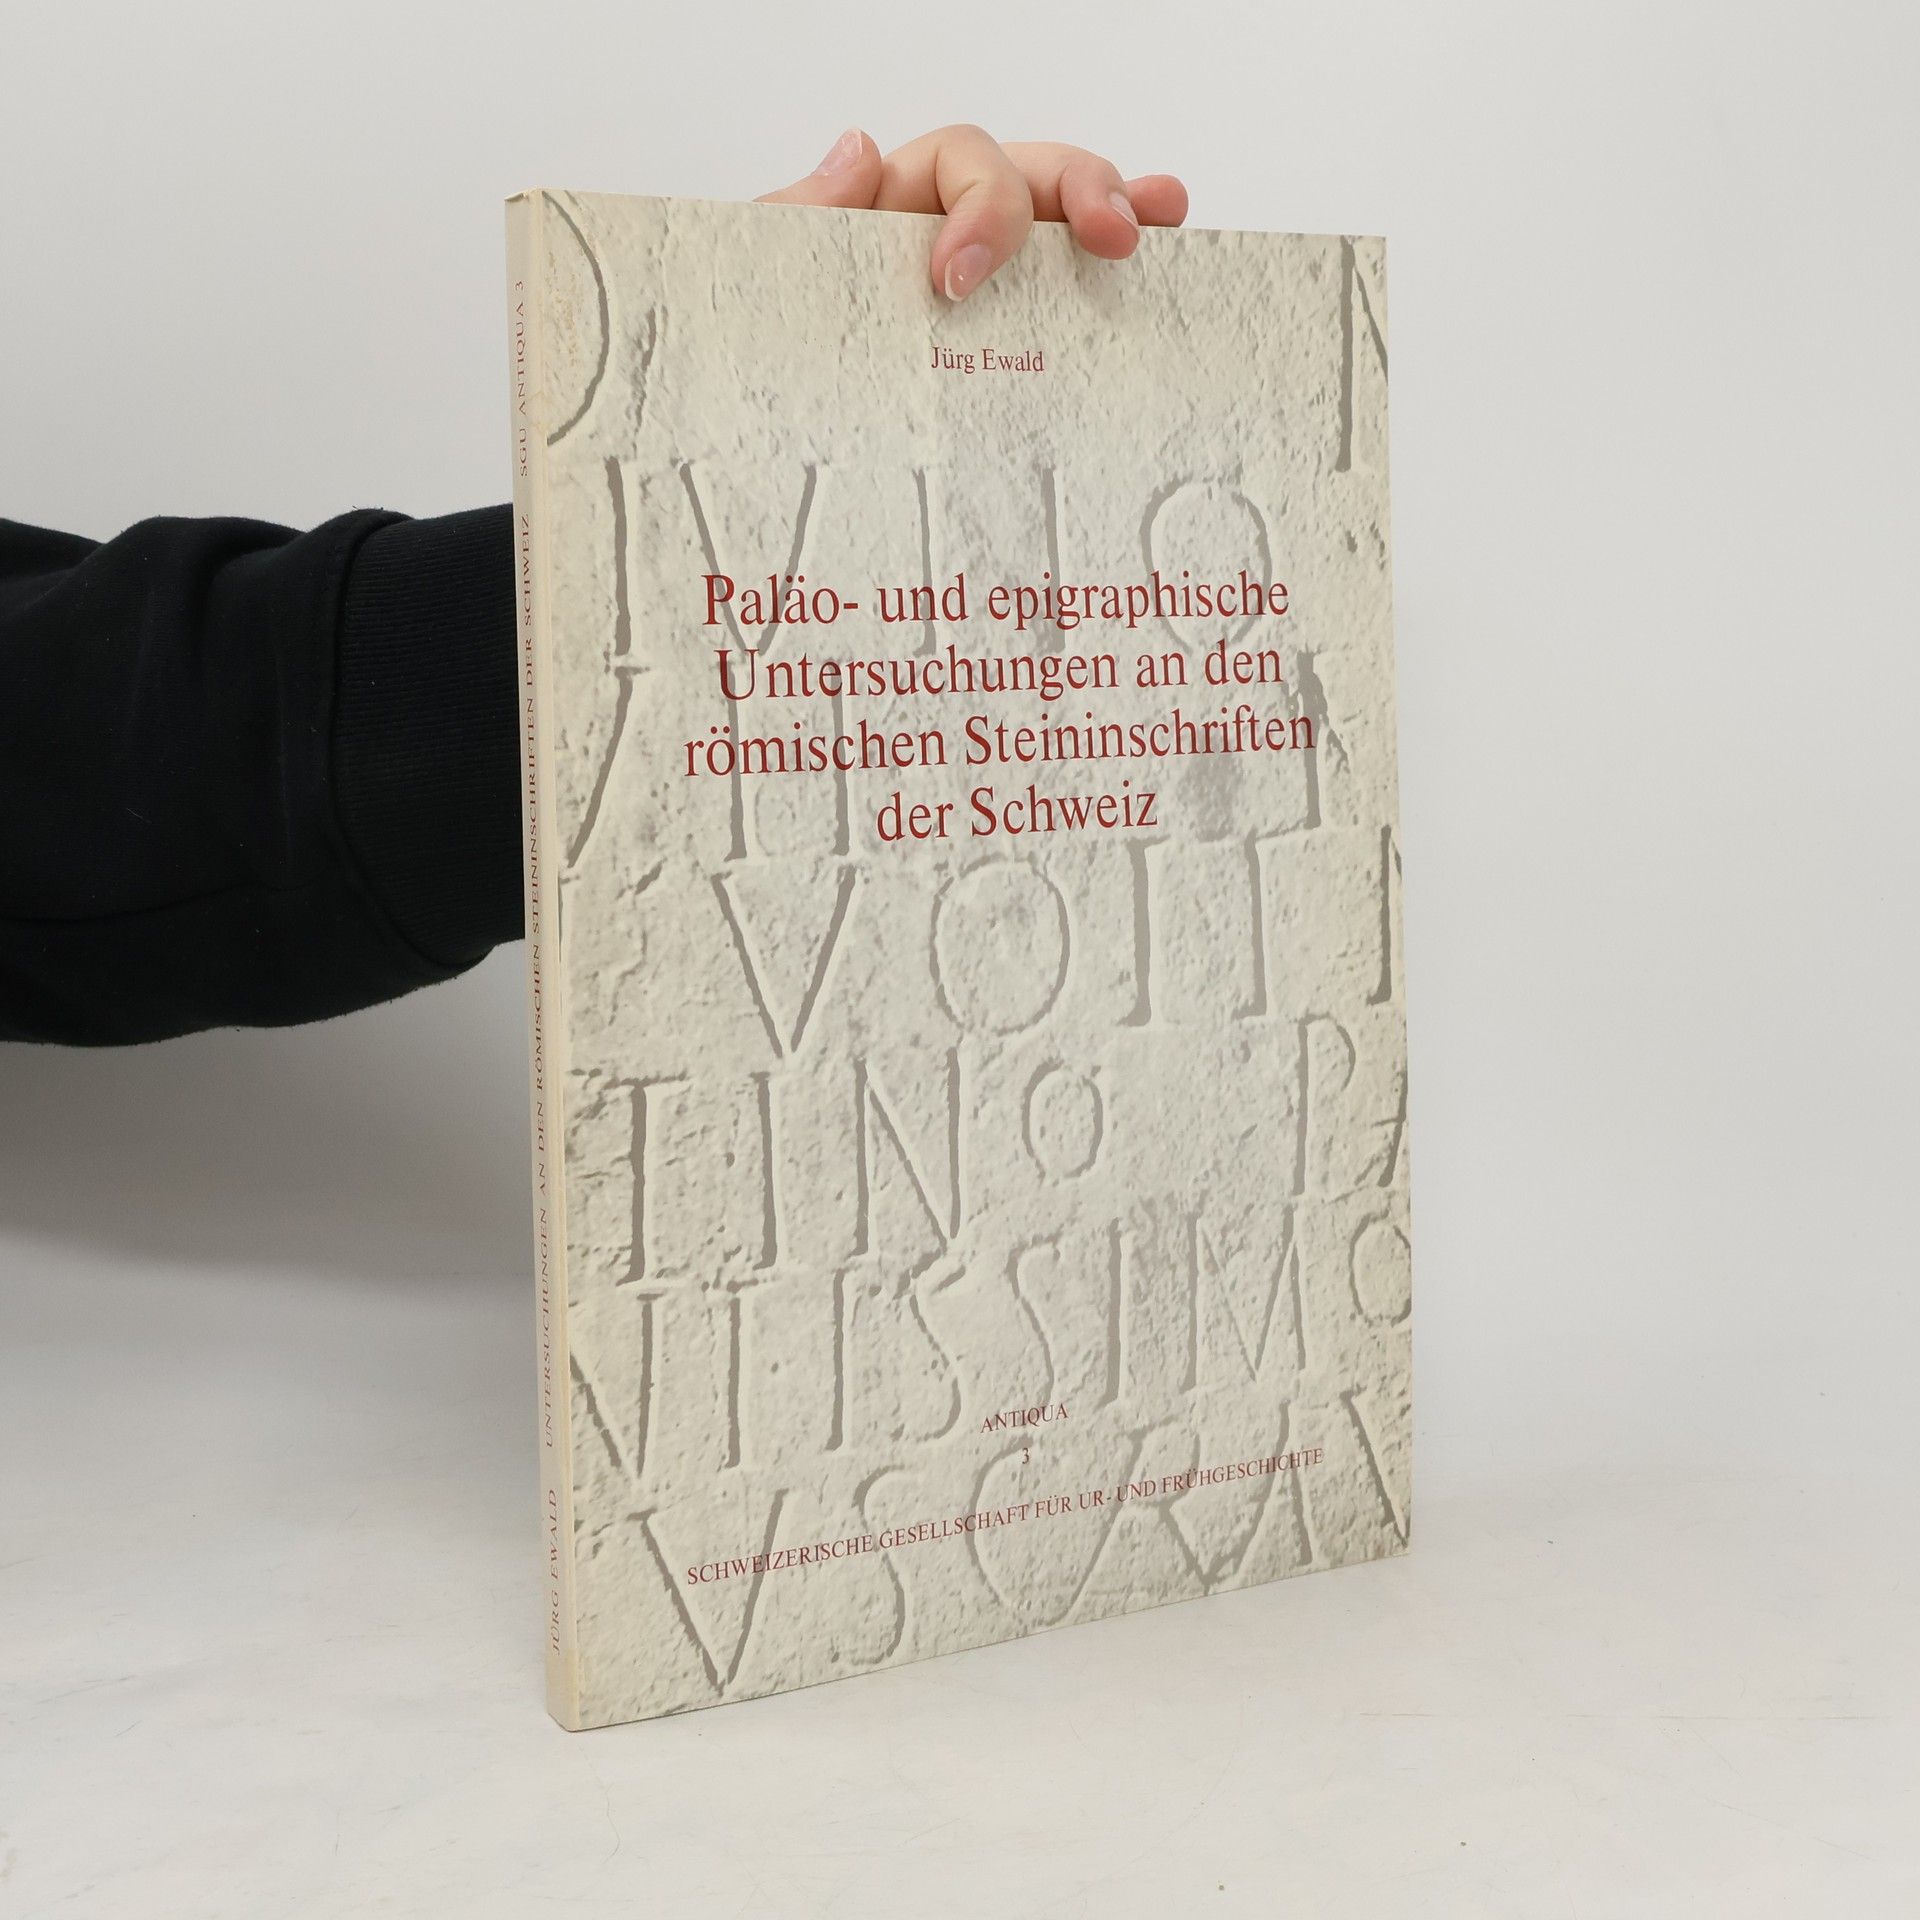 Jürg Ewald
Paläo- und epigraphische
Untersuchungen an den
römischen Steininschriften
der Schweiz
ANTIQUA
3
SCHWEIZERISCHE GESELLSCHAFT FÜR UR- UND FRÜHGESCHICHTE
JÜRG EWALD UNTERSUCHUNGEN AN DEN RÖMISCHEN STEININSCHRIFTEN DER SCHWEIZ SGU ANTIQUA 3
VOTI
TINO PA
NTISSIMO